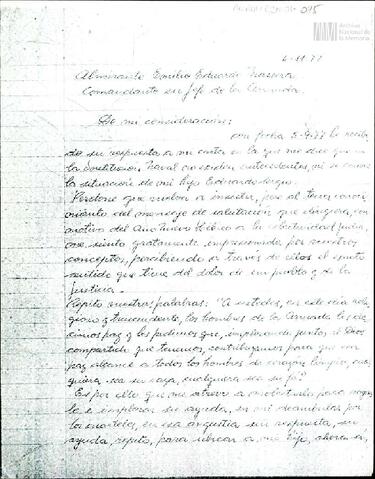 075
Archivo
Nacional de
la Memoria
6-11-77
Almirante Emilio Eduardo Massera
Comandante en Jefe de la Armada.
De mi consideración:
con fecha 5-9-77 he recibi
do su respuesta a mi carta en la que me dice que en
la Institución Naval no existen antecedentes, ni se conoce
la situación de mi hijo Eduardo Sergio.
Perdone que vuelva a insistir, pero al tener conoci
miento del mensaje de salutación que dirigiera, con
motivo del Año Nuevo Hebreo a la colectividad judía,
me siento gratamente impresionada por vuestros
conceptos, percibiendo a través de ellos el exacto
sentido que tiene del dolor de un pueblo y de la
justicia.
Repito vuestras palabras: "A ustedes, en este día reli
gioso y trascendente, los hombres de la Armada les de
cimos paz y les pedimos que, implorando juntos, al Dios
compartido que tenemos, contribuyamos para que esa
paz alcance a todos los hombres de corazón limpio, cual
quiera sea su raza, cualquiera sea su fe".
Es por ello que me atrevo a molestarlo para rogar
le e implorar su ayuda, en mi desamparo por
la incerteza, en esa angustia sin respuesta, su
ayuda, repito, para ubicar a mi hijo, ahora en